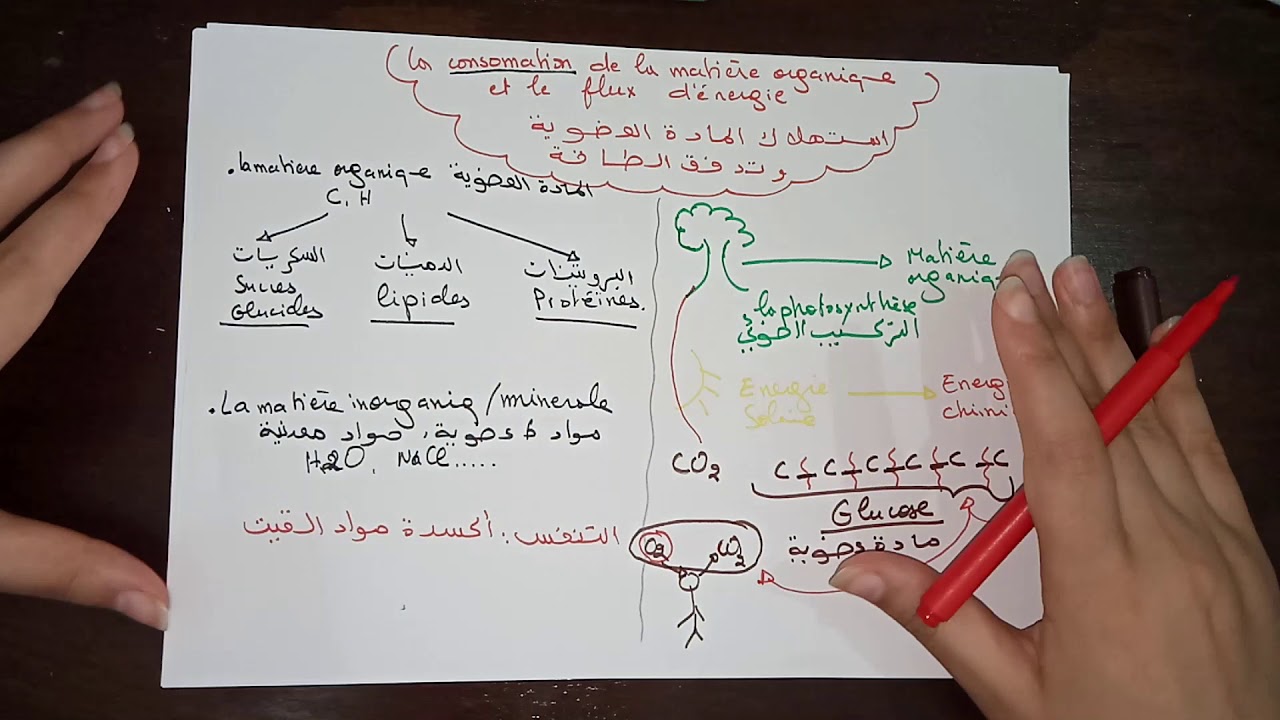 la consomation de la matière organique
et le flux d'énergie
استهلاك المادة العضوية
وتدفق الطاقة
. la matière organique المادة العضوية
C, H
السكريات
Sucres
Glucides
الدهنيات
lipides
البروتينات
Protéines.
. La matière inorganiq/minerale
مواد لا عضوية، مواد معدنية
H2O, NaCl.....
التنفس: أكسدة مواد القيت
Matière
organiq
la photosynthèse
التركيب الضوئي
Energie
Solaire
Energ
chimi
CO2
C-C-C-C-C-C
Glucose
مادة عضوية
O2
CO2